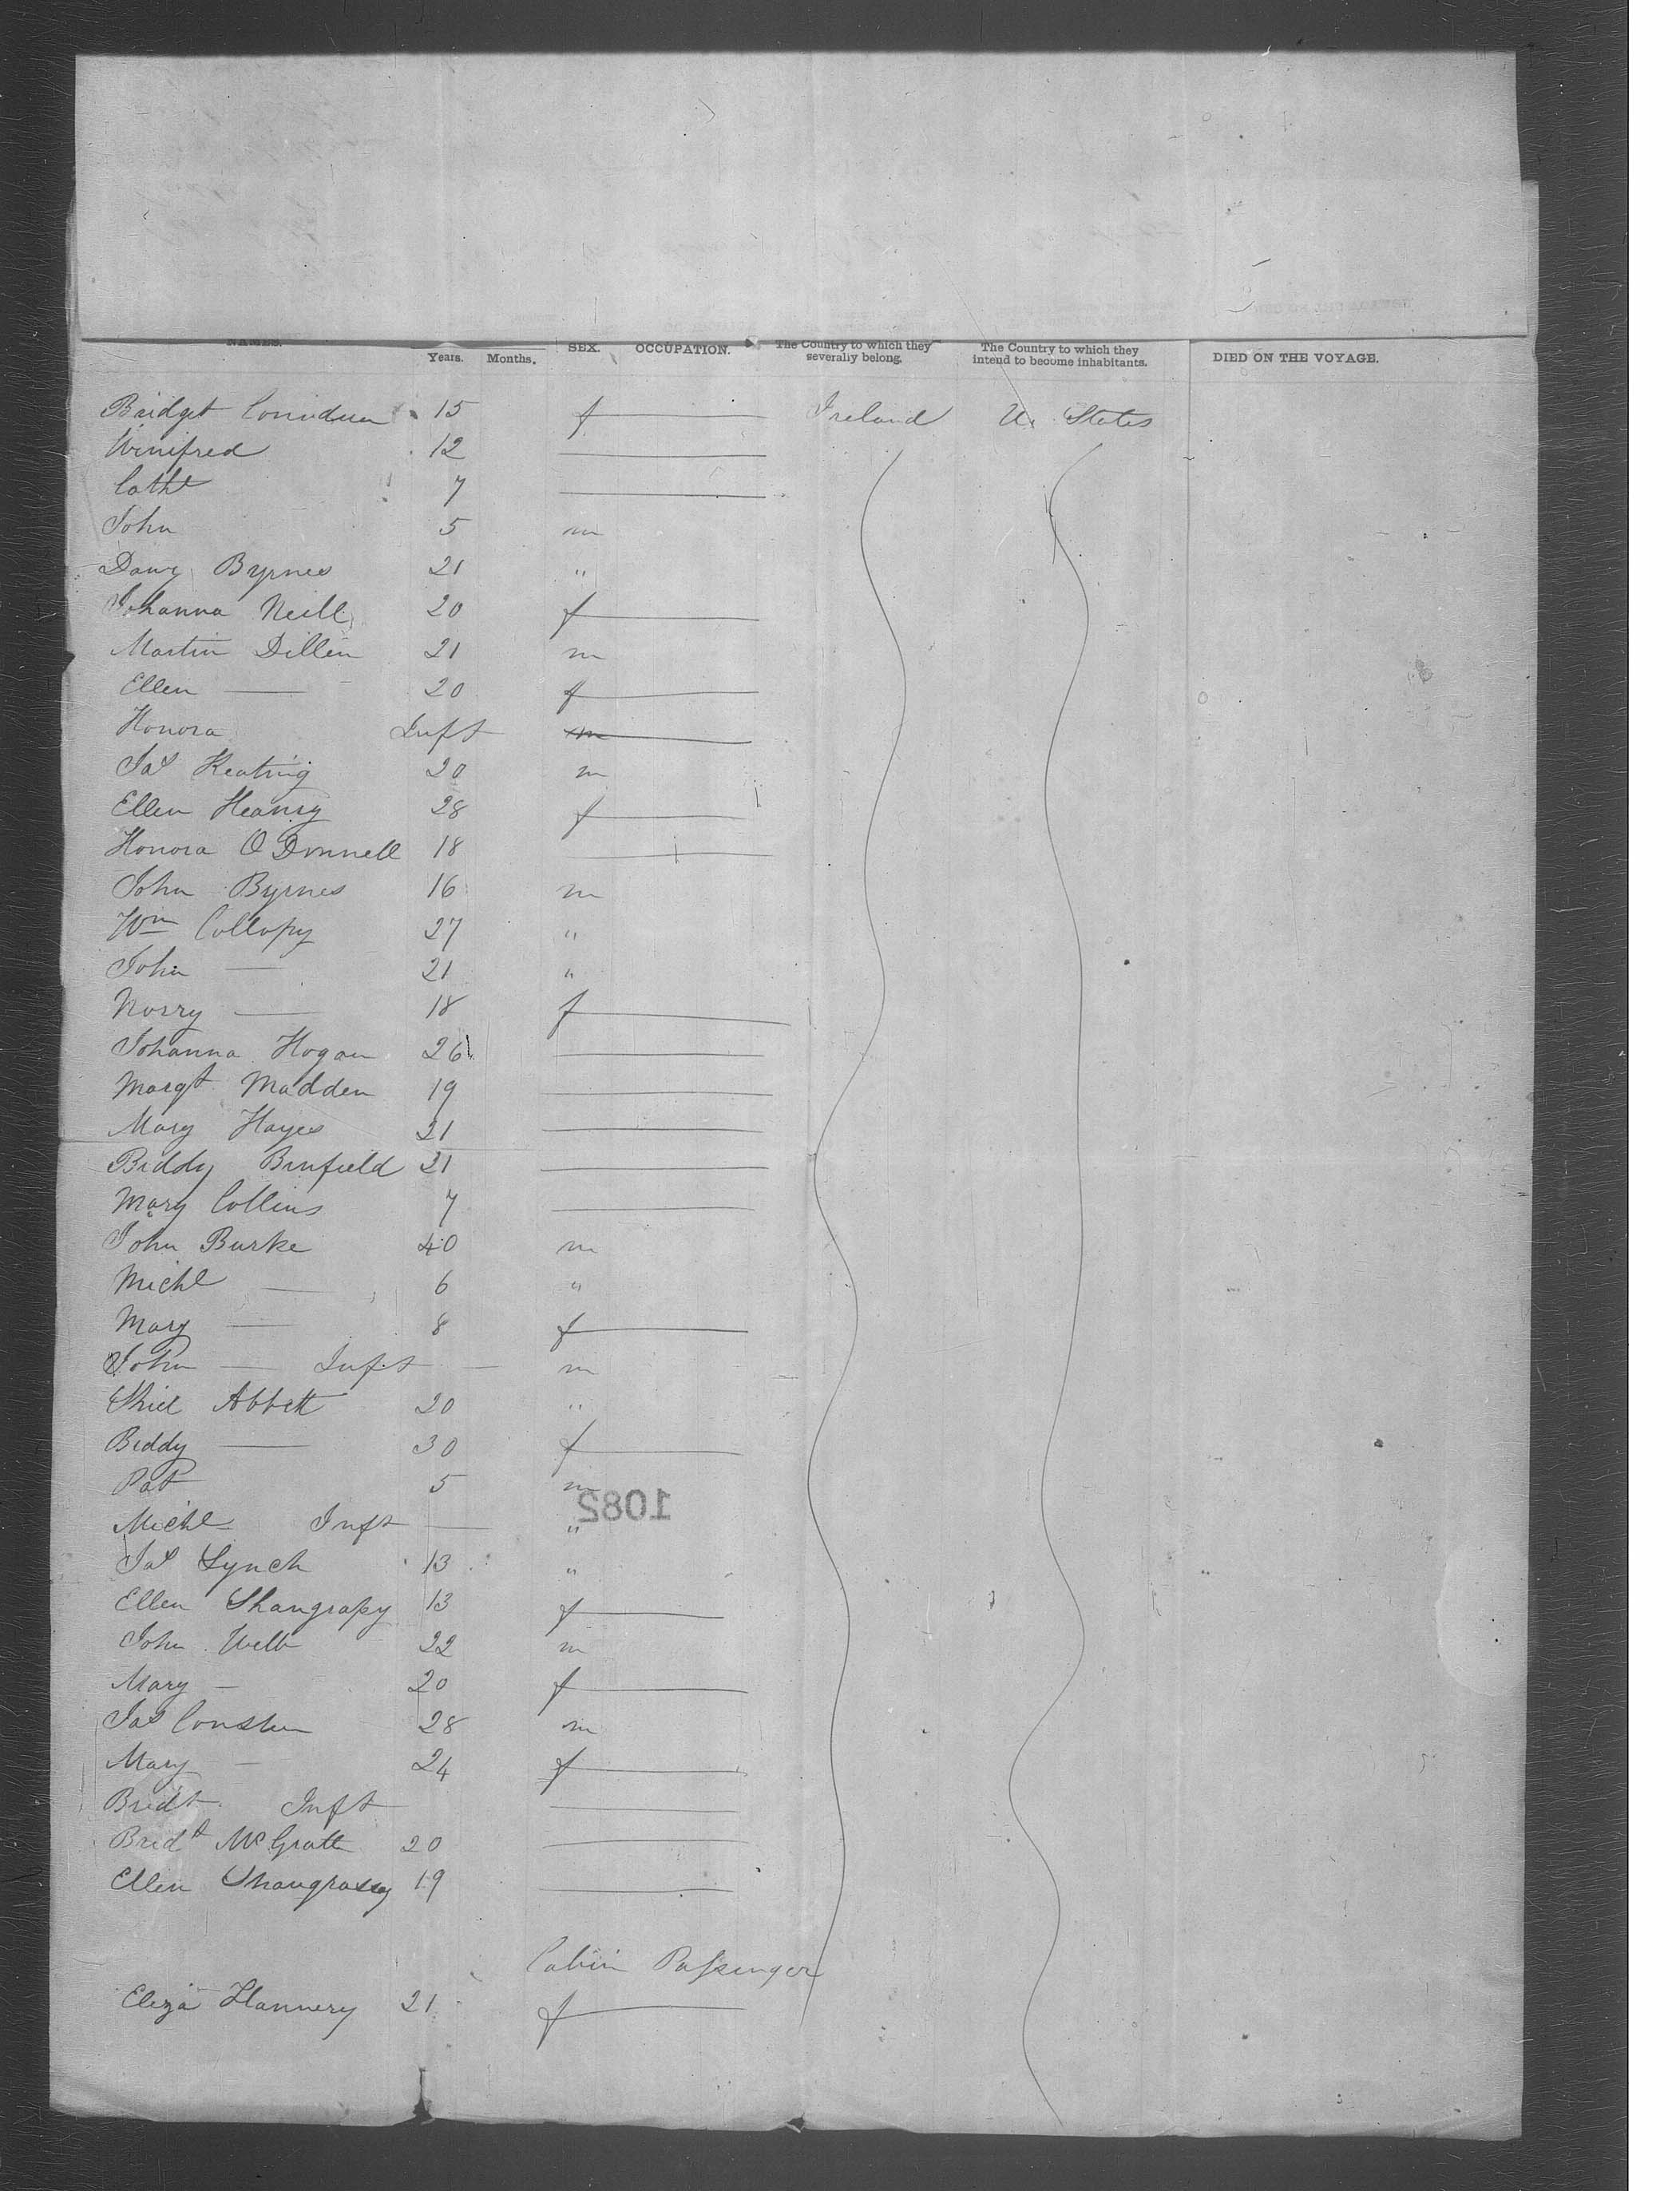 NAMES. Years. Months. SEX. OCCUPATION. The Country to which they severally belong. The Country to which they intend to become inhabitants. DIED ON THE VOYAGE.
Bridget 15 f Ireland U. States
Winifred 12
Catht 7
John 5 m
Byrnes 21 "
Johanna Neill 20 f
Martin Dillen 21 m
Ellen — 20 f
Honora Inft m
Jas Keating 20 m
Ellen Heaney 28 f
Honora O Donnell 18
John Byrnes 16 m
Wm Collopy 27 "
John — 21 "
Norry — 18 f
Johanna Hogan 26
Margt Madden 19
Mary Hayes 21
Biddy Binfield 21
Mary Collins 7
John Burke 40 m
Michl — 6 "
Mary — 8 f
John — Inft — m
Abbett 20 "
Biddy — 30 f
Pat 5 m
1082
Michl Inft — "
Jas Lynch 13 "
Ellen 13 f
John Webb 22 m
Mary — 20 f
Jas 28 m
Mary — 24 f
Bridt Inft
Bridt McGrath 20
Ellen Shaugrassy 19
Cabin Passenger
Eliza Flannery 21 f